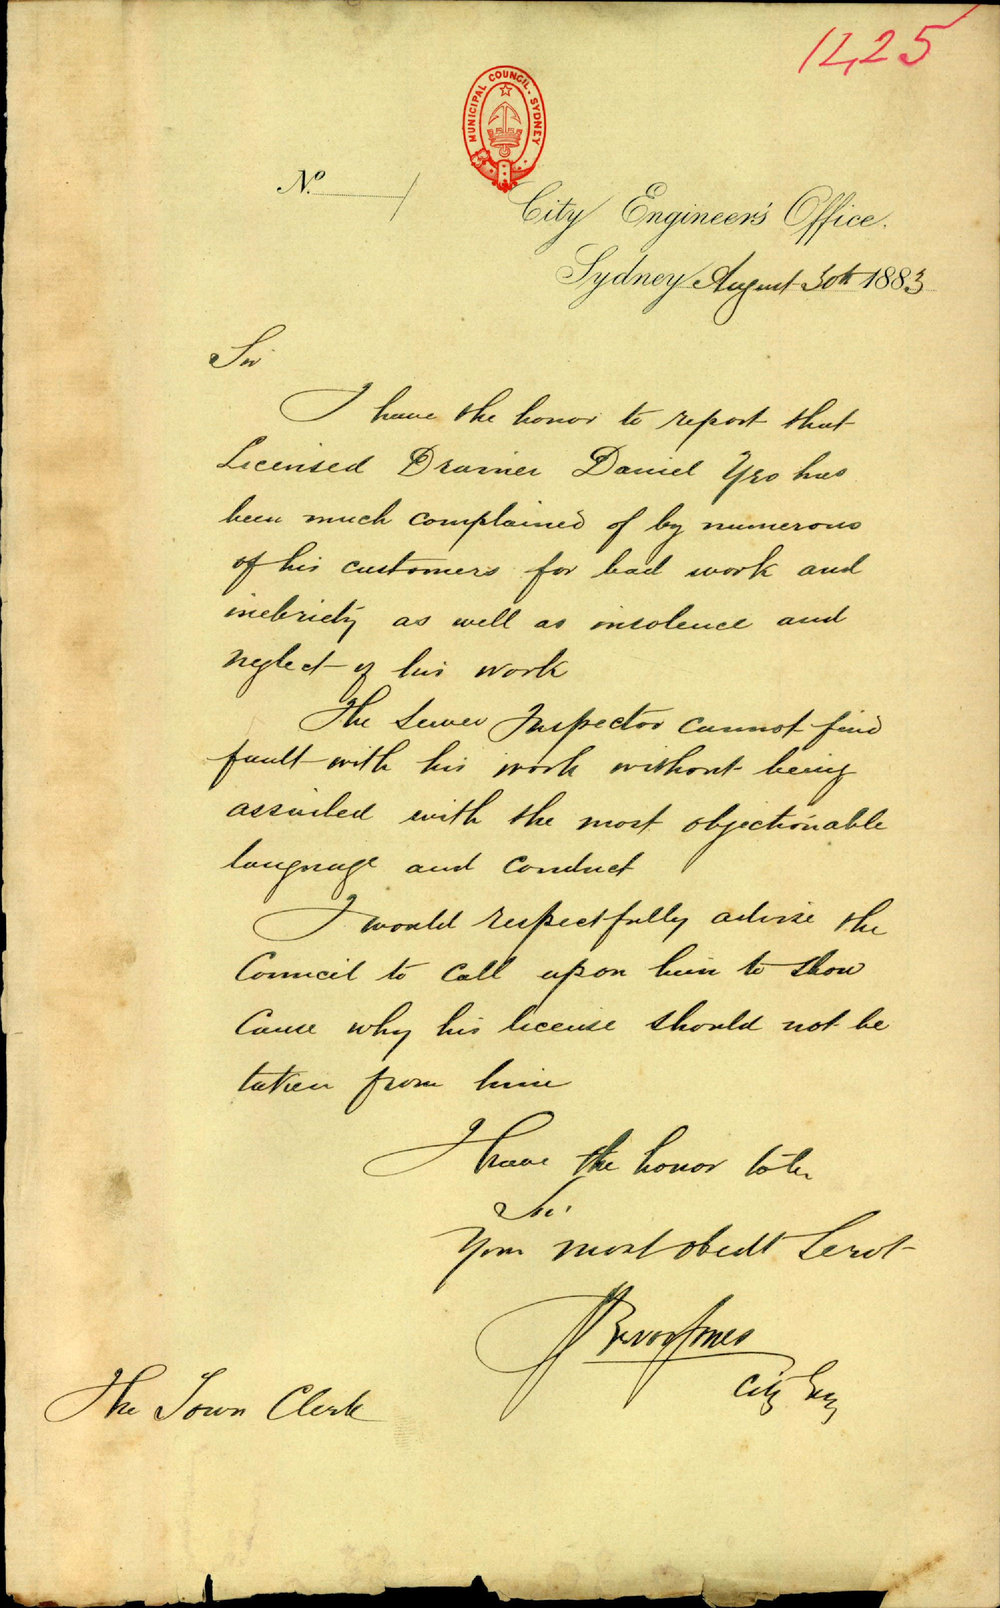 1425
MUNICIPAL COUNCIL. SYDNEY
No
City Engineer's Office.
Sydney August 30th 1883
Sir
I have the honor to report that
Licensed Drainer Daniel has
been much complained of by numerous
of his customers for bad work and
inebriety as well as insolence and
neglect of his work
The Sewer Inspector cannot find
fault with his work without being
assailed with the most objectionable
language and conduct
I would respectfully advise the
Council to call upon him to show
cause why his license should not be
taken from him
I have the honor to be
Sir
Your most obedt Servt
City Eng
The Town Clerk